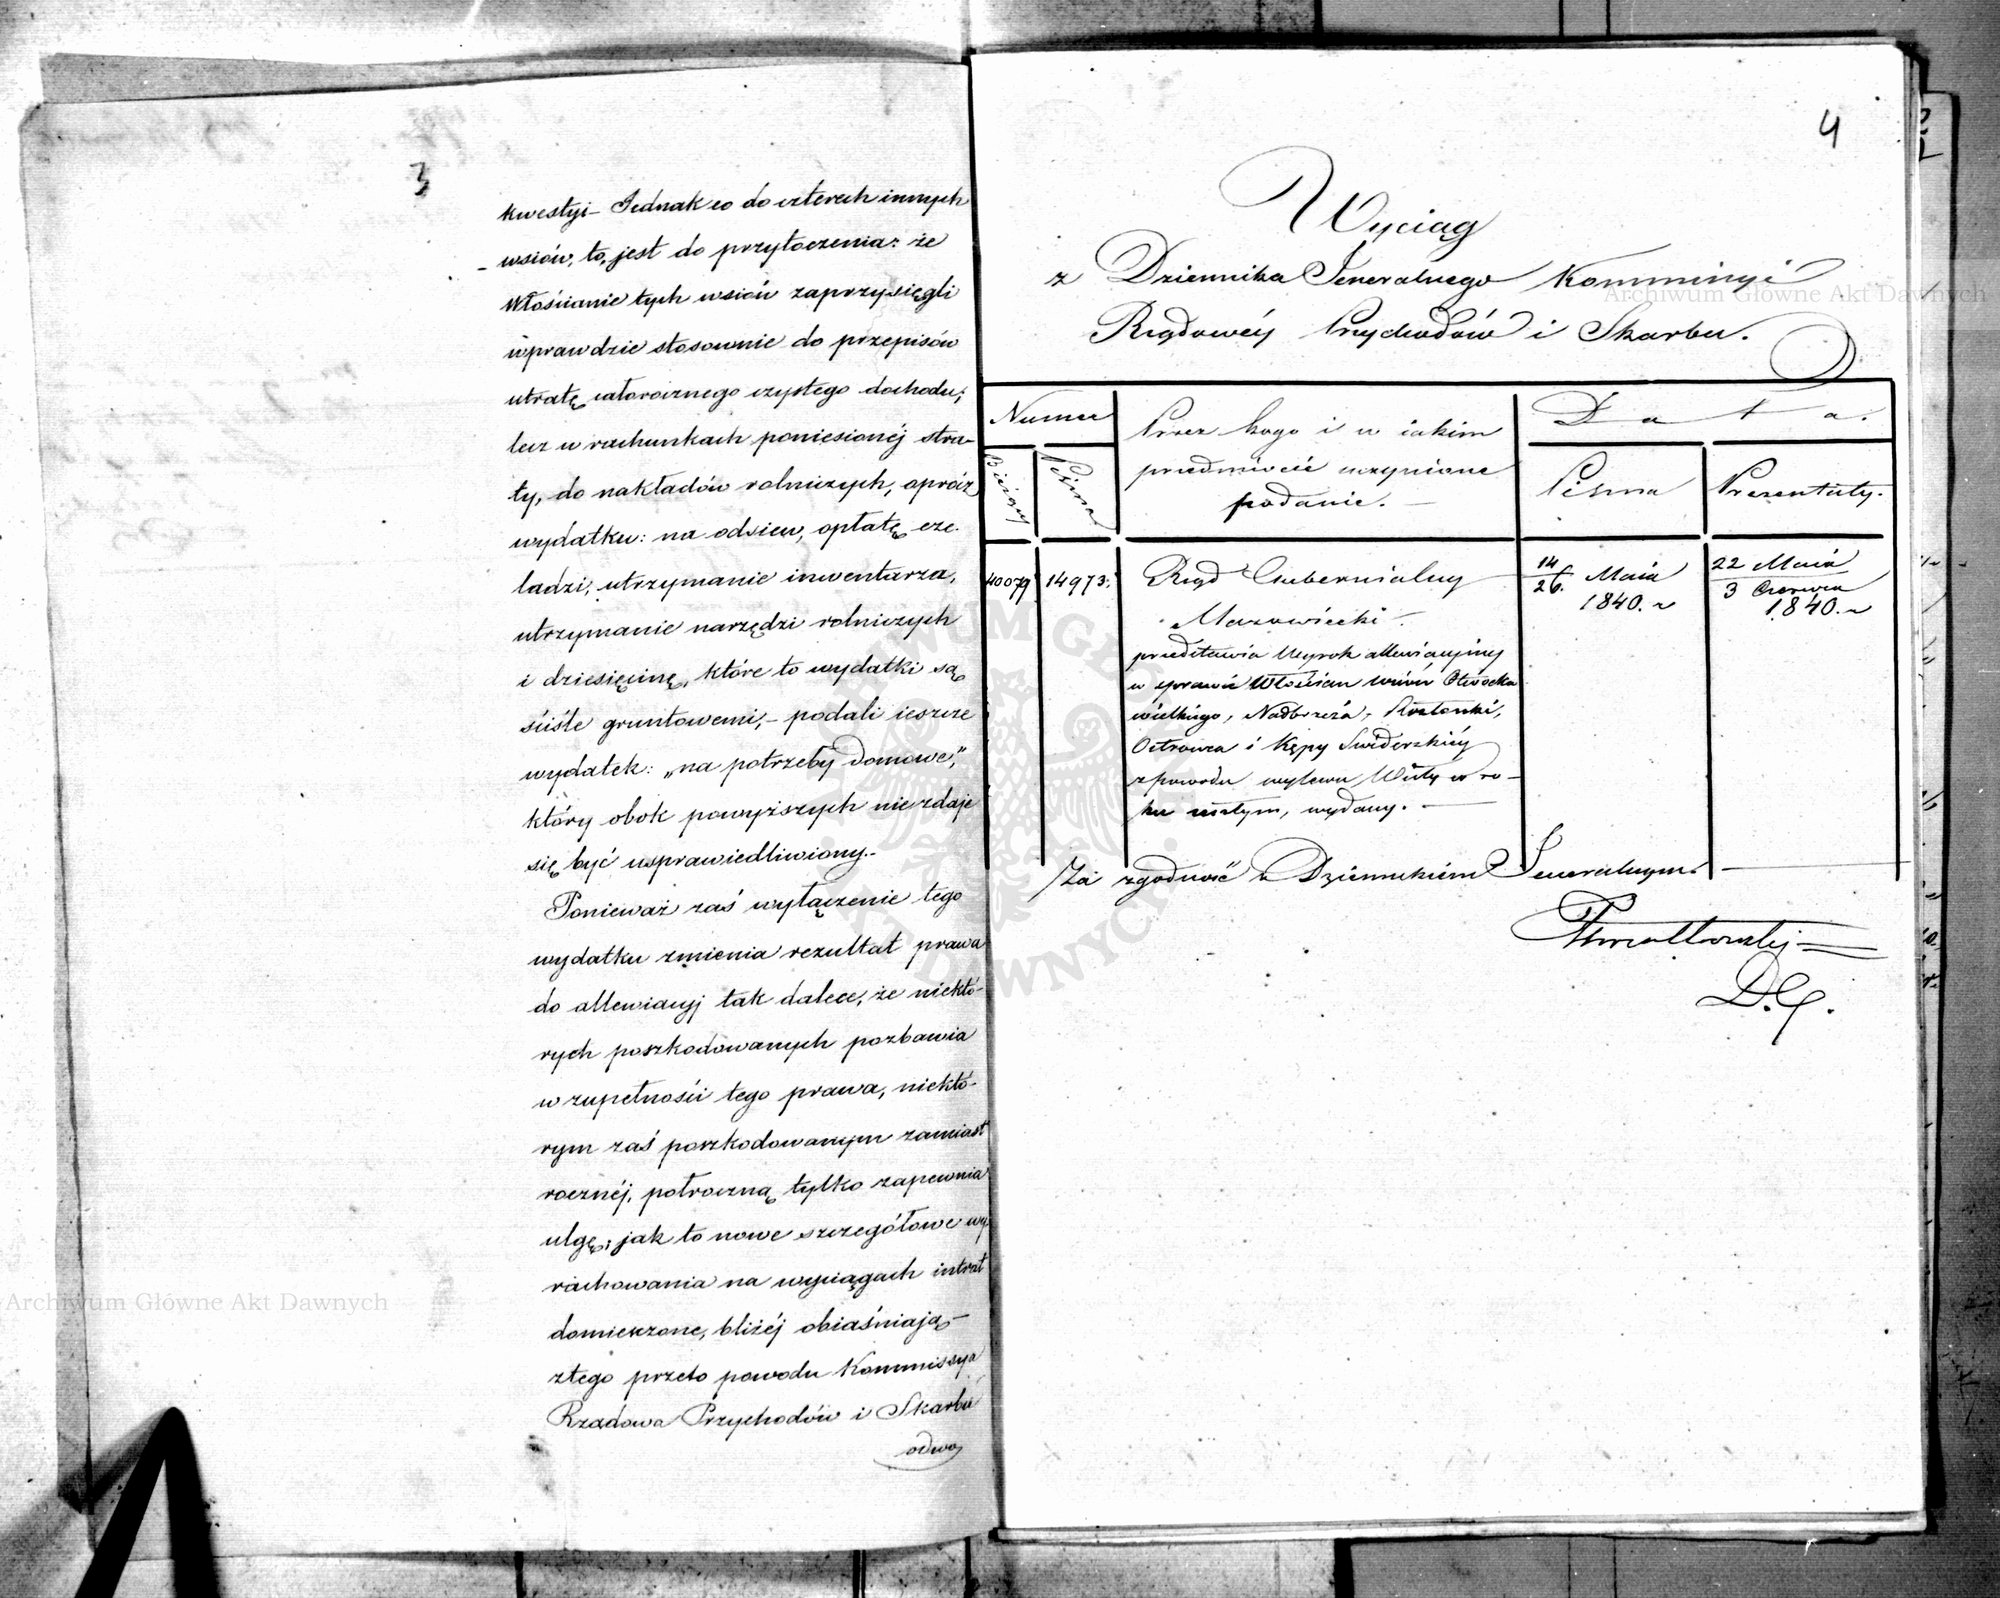 3
kwestyi – Jednak co do czterech innych
wsiów, to jest do przytoczenia: że
Włościanie tych wsiów zaprzysięgli
wprawdzie stosownie do przepisów
utratę całorocznego czystego dochodu;
lecz w rachunkach poniesionéj stra-
ty, do nakładów rolniczych, oprócz
wydatku: na odsiew, opłatę cze-
ladzi, utrzymanie inwentarza,
utrzymanie narzędzi rolniczych
i dziesięcinę, które to wydatki są
ściśle gruntowemi, – podali ieszcze
wydatek: „na potrzeby domowe,"
który obok powyższych nie zdaje
się być usprawiedliwiony. –
Ponieważ zaś wyłączenie tego
wydatku zmienia rezultat prawa
do allewiacyj tak dalece, że niektó-
rych poszkodowanych pozbawia
w zupełności tego prawa, niektó-
rym zaś poszkodowanym zamiast
rocznéj, półroczną tylko zapewnia
ulgę; jak to nowe szczegółowe wy
rachowania na wyciągach intrat
domieszczone, bliżéj obiaśniają –
z tego przeto powodu Kommissya
Rządowa Przychodów i Skarbu
odwo
4
Wyciąg
z Dziennika Jeneralnego Kommissyi
Rządowéy Przychodów i Skarbu.
Numer
Bieżący
Pisma
Przez kogo i w iakim
przedmiocie uczynione
podanie. –
Data.
Pisma
Prezentaty.
40079.
14973.
Rząd Gubernialny
Mazowiecki –
przedstawia Wyrok allewiacyjny
w sprawie Włościan wsiów Otwocka
wielkiego, Nadbrzeża,
Ostrowca i Kępy Świderskiéy
z powodu wylewu Wisły w ro-
ku zeszłym, wydany. –
14/26. Maia
1840. r
22 Maia
3 Czerwca
1840. r
Za zgodność z Dziennikiem Jeneralnym. –
D. J.
Archiwum Główne Akt Dawnych
Archiwum Główne Akt Dawnych